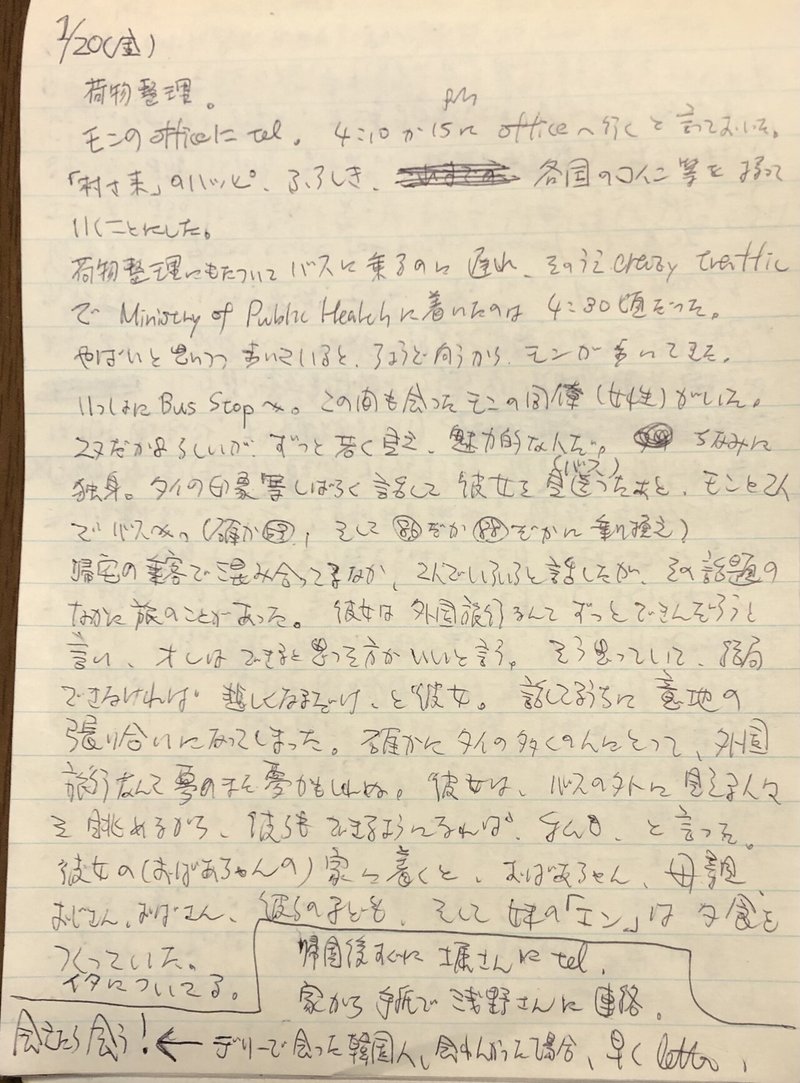 1/20(金)
荷物整理。
pm
モンのofficeにtel。 4:10か15に officeへ行くと言っておいた。
「村さ来」のハッピ、ふろしき、 各国のコイン等を持って
いくことにした。
荷物整理にもたついてバスに乗るのに遅れ、そのうえcrazy traffic
で Ministry of Public Healthに着いたのは 4:30頃だった。
やばいと思いつつ歩いていると、ちょうど向うから、モンが歩いてきた。
いっしょにBus Stopへ。この間も会ったモンの同僚(女性)がいた。
27だかららしいが、ずっと若く見え、魅力的な人だ。 ちなみに
独身。タイの印象等しばらく話して彼女を(バス)見送ったあと、モンと2人
でバスへ。(確か , そして だか だかに乗り換え)
帰宅の乗客で混み合ってるなか、2人でいろいろと話したが、その話題の
なかに旅のことがあった。 彼女は外国旅行なんてずっとできんだろうと
言い、オレはできると思った方がいいと言う。そう思っていて、結局
できなければ 悲しくなるだけ、と彼女。話してるうちに意地の
張り合いになってしまった。確かにタイの多くの人にとって、外国
旅行なんて夢のまた夢かもしれぬ。彼女は、バスの外に見える人々
を眺めながら、彼らもできるようになれば、 と言った。
彼女の(おばあちゃんの)家に着くと、おばあちゃん、母親、
おじさん、おばさん、彼らの子ども、そして妹の「エン」は夕食を
つくっていた。
イタについてる。
帰国後すぐに 堀さんに tel.
家から手紙で浅野さんに連絡。
会えたら会う!← デリーで会った韓国人、会わんかった場合、早くletter.